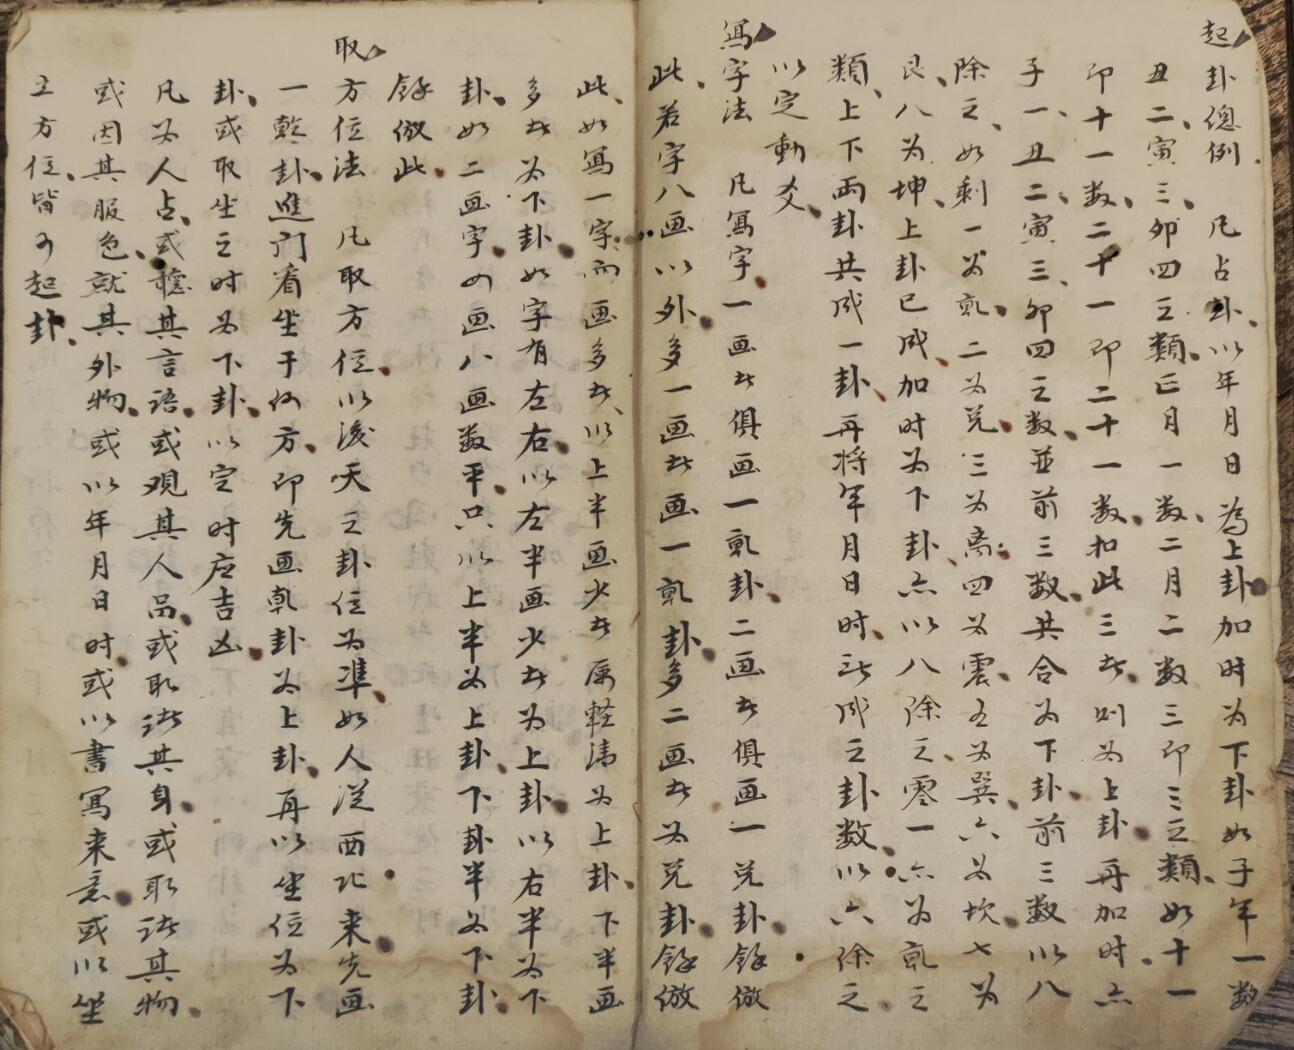 起卦總例　凡占卦以年月日為上卦加时为下卦如子年一数
丑二寅三卯四之類正月一数二月二数三即三之類如十一
即十一数二十一即二十一数扣此三者则为上卦再加时亦
子一丑二寅三卯四之数並前三数共合为下卦前三数以八
除之如剩一为乹二为兑三为离四为震五为巽六为坎七为
艮八为坤上卦已成加时为下卦亦以八除之零一亦为乹之
類上下两卦共成一卦再将年月日时所成之卦数以六除之
以定動爻
寫字法　凡寫字一画者俱画一乹卦二画者俱画一兑卦餘倣
此若字八画以外多一画者画一乹卦多二画者为兑卦餘倣
此如寫一字而画多者以上半画少者属輕清为上卦下半画
多者为下卦如字有左右以左半画少者为上卦以右半为下
卦如二画字四画八画数平只以上半为上卦下卦半为下卦
餘倣此
取方位法　凡取方位以後天之卦位为準如人從西北来先画
一乾卦進门看坐于何方即先画乹卦为上卦再以坐位为下
卦或取坐之时为下卦以定时应吉凶
凡为人占或聽其言语或观其人品或取诸其身或取诸其物
或因其服色就其外物或以年月日时或以書寫来意或以坐
立方位皆可起卦